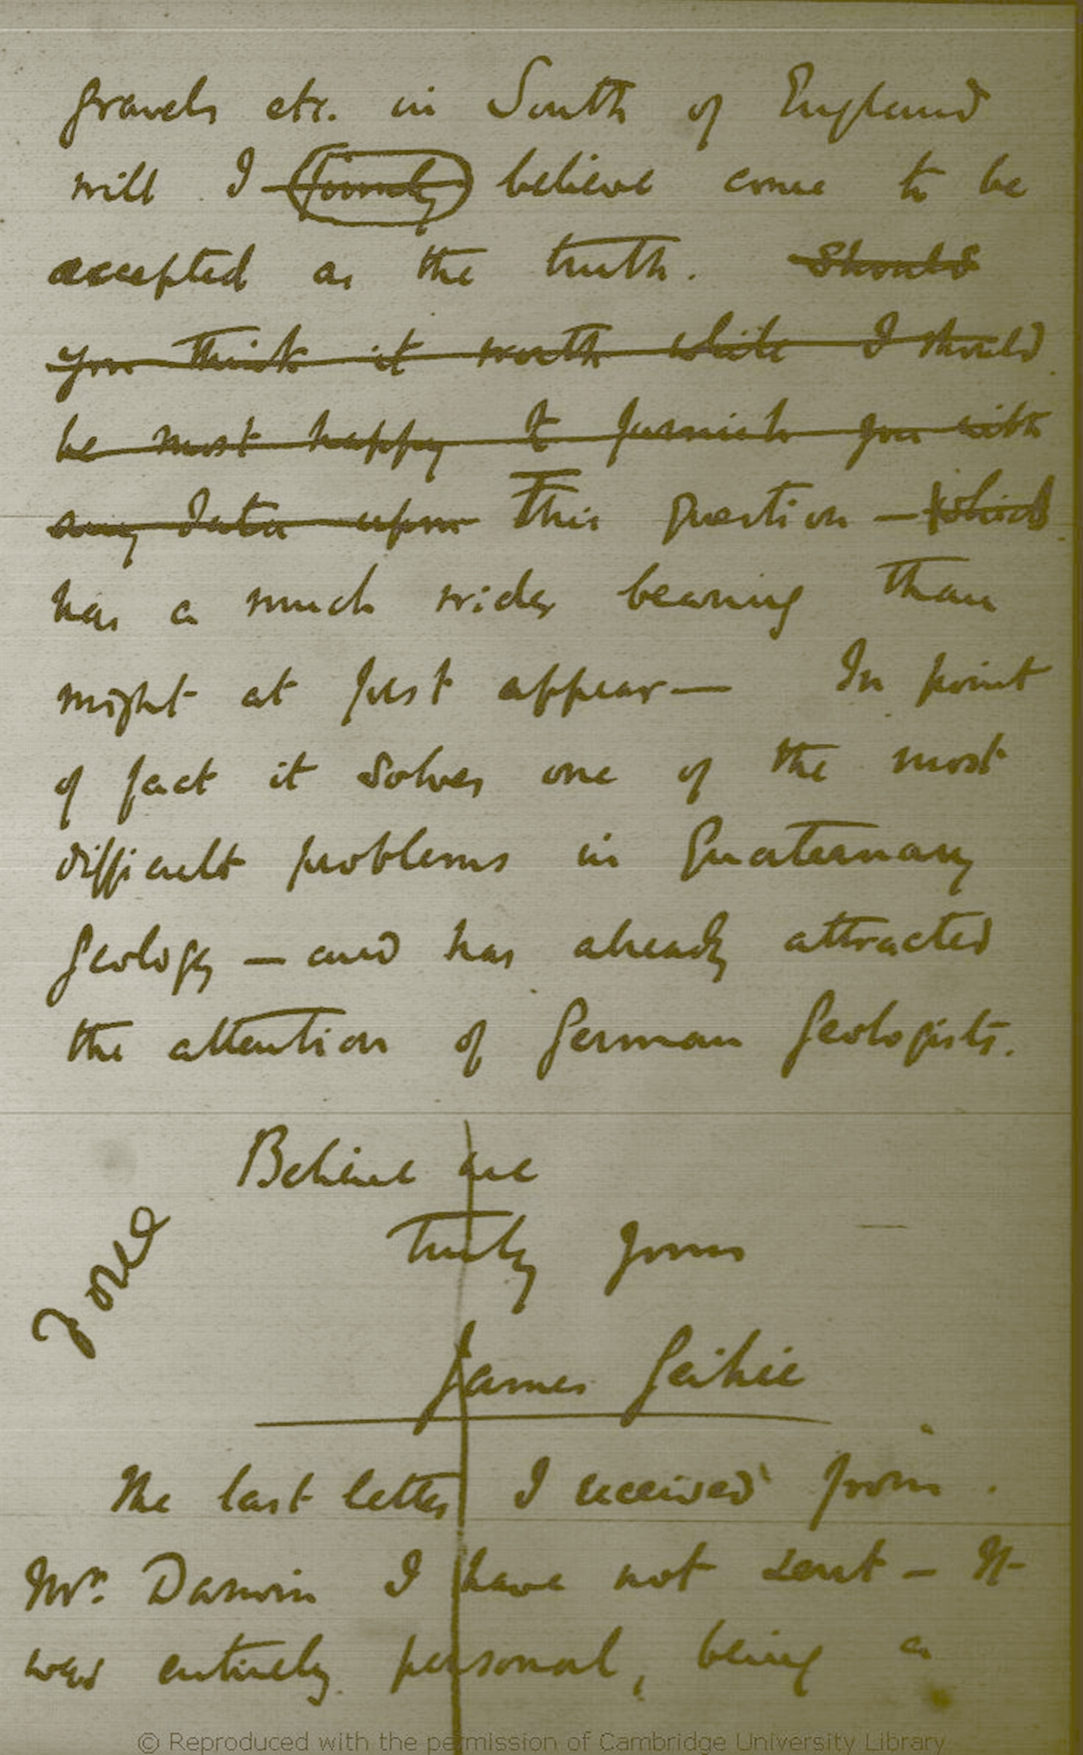 gravels etc. in South of England
will I firmly believe come to be
accepted as the truth. Should
you think it worth while I should
be most happy to furnish you with
any data upon This question — which
has a much wider bearing than
might at first appear — In point
of fact it solves one of the most
difficult problems in Quaternary
Geology — and has already attracted
the attention of German Geologists.
Believe me
Truly yours
James Geikie
The last letter I received from
Mr. Darwin I have not sent — It
was entirely personal, being a
© Reproduced with the permission of Cambridge University Library